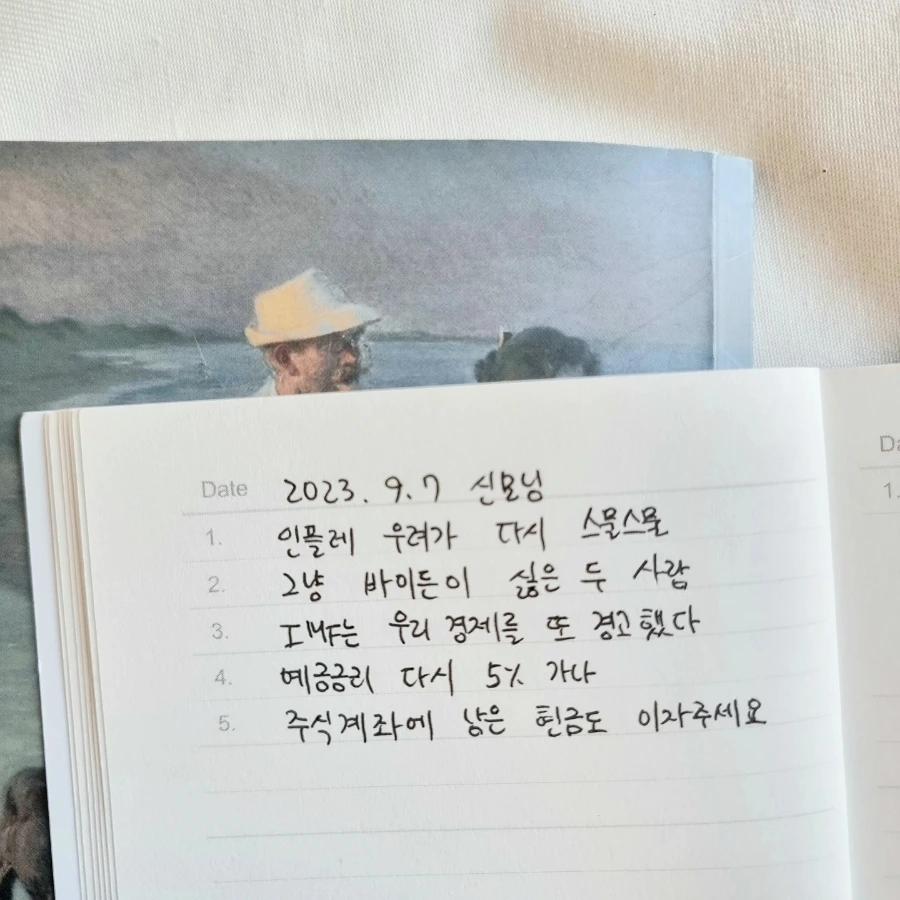 Date 2023. 9. 7 신모닝
1. 인플레 우려가 다시 스물스물
2. 그냥 바이든이 싫은 두 사람
3. IMF는 우리 경제를 또 경고했다
4. 예금금리 다시 5% 가나
5. 주식계좌에 남은 현금도 이자주세요
Da
1.